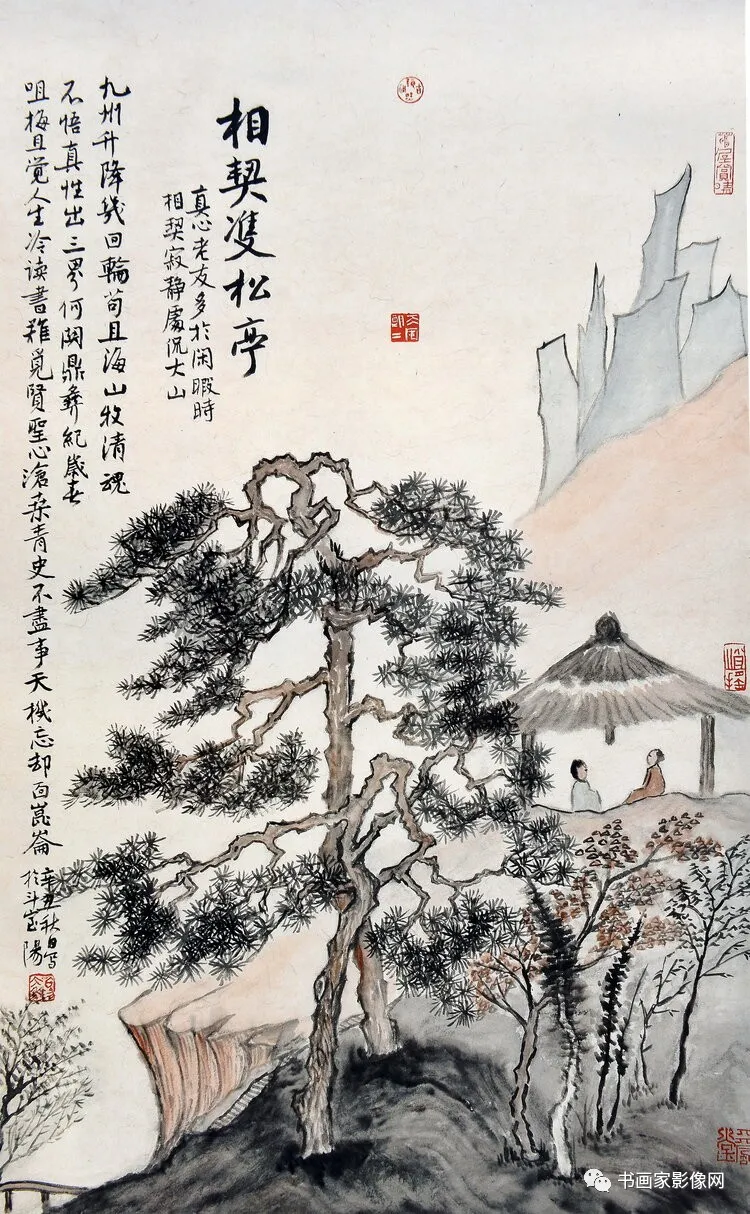 相契雙松亭
真心老友多於闲暇時
相契寂静處况大山
九州升降幾回輪苟且海山牧清魂
不悟真性出三界何闕鼎彝紀歲春
咀梅且觉人生冷读書難覓賢聖心滄桑青史不盡事天機忘却向崑崙
辛丑秋日写
於斗室陽
书画家影像网